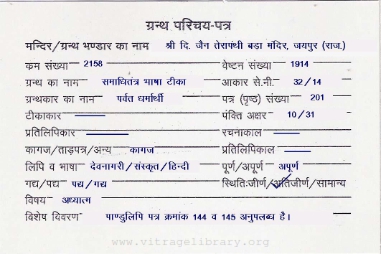 ग्रन्थ परिचय-पत्र
मन्दिर/ग्रन्थ भण्डार का नाम श्री दि. जैन तेरापंथी बडा मंदिर, जयपुर (राज.)
क्रम संख्या 2158 वेष्टन संख्या 1914
ग्रन्थ का नाम समाधितंत्र भाषा टीका आकार से.मी. 32/14
ग्रन्थकार का नाम पर्वत धर्मार्थी पत्र (पृष्ठ) संख्या 201
टीकाकार पंक्ति अक्षर 10/31
प्रतिलिपिकार रचनाकाल
कागज/ताड़पत्र/अन्य कागज प्रतिलिपिकाल
लिपि व भाषा देवनागरी/संस्कृत/हिन्दी पूर्ण/अपूर्ण अपूर्ण
गद्य/पद्य पद्य/गद्य स्थिति:जीर्ण/अतिजीर्ण/सामान्य
विषय अध्यात्म
विशेष विवरण पाण्डुलिपि पत्र क्रमांक 144 व 145 अनुपलब्ध है।
www.vitragelibrary.org